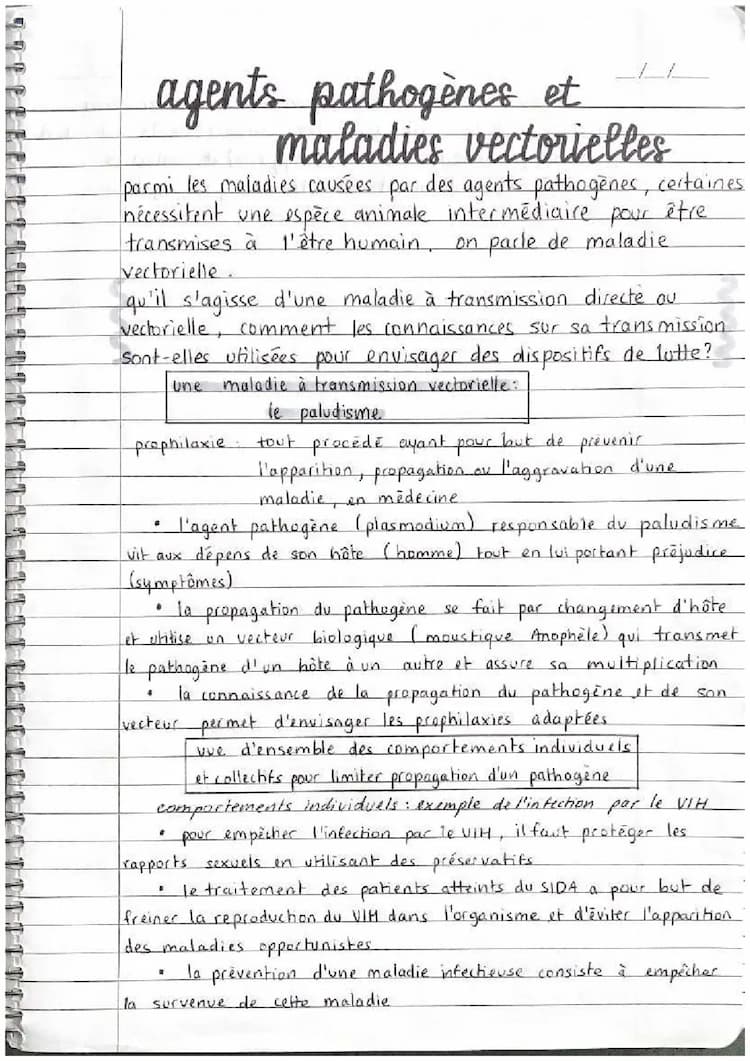 _/_/_
agents pathogènes et
maladies vectorielles
parmi les maladies causées par des agents pathogènes, certaines
nécessitent une espèce animale intermédiaire pour être
transmises à l'être humain. on parle de maladie
vectorielle.
qu'il s'agisse d'une maladie à transmission directe ou
vectorielle, comment les connaissances sur sa transmission
sont-elles utilisées pour envisager des dispositifs de lutte?
une maladie à transmission vectorielle:
le paludisme
prophilaxie : tout procédé ayant pour but de prévenir
l'apparition, propagation ou l'aggravation d'une
maladie, en médecine
• l'agent pathogène (plasmodium) responsable du paludisme
vit aux dépens de son hôte (homme) tout en lui portant préjudice
(symptômes)
• la propagation du pathogène se fait par changement d'hôte
et utilise un vecteur biologique (moustique Anophèle) qui transmet
le pathogène d'un hôte à un autre et assure sa multiplication
• la connaissance de la propagation du pathogène et de son
vecteur permet d'envisager les prophilaxies adaptées
vue d'ensemble des comportements individuels
et collectifs pour limiter propagation d'un pathogène
comportements individuels : exemple de l'infection par le VIH
• pour empêcher l'infection par le VIH, il faut protéger les
rapports sexuels en utilisant des préservatifs
• le traitement des patients atteints du SIDA a pour but de
freiner la reproduction du VIH dans l'organisme et d'éviter l'apparition
des maladies opportunistes
• la prévention d'une maladie infectieuse consiste à empêcher
la survenue de cette maladie